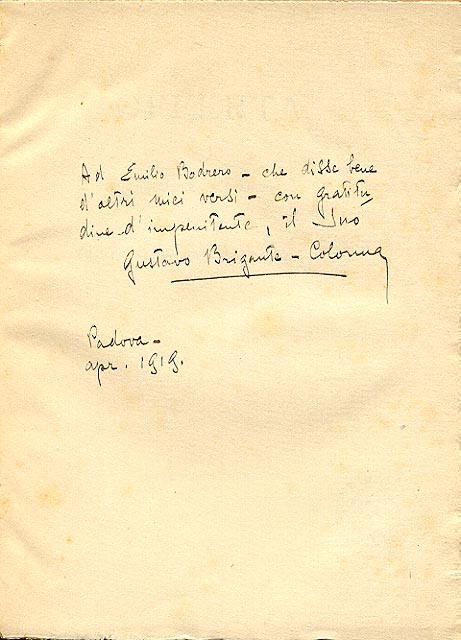 Ad Emilio Bodrero - che disse bene
d'altri miei versi - con gratitu
dine d'impenitente, il Suo
Gustavo Brigante - Colonna
Padova -
apr. 1919.